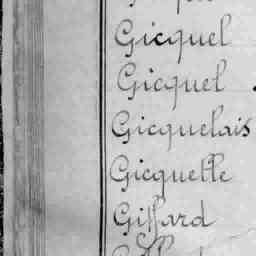 Gicquel
Gicquel
Gicquelais
Gicquelle
Giffard